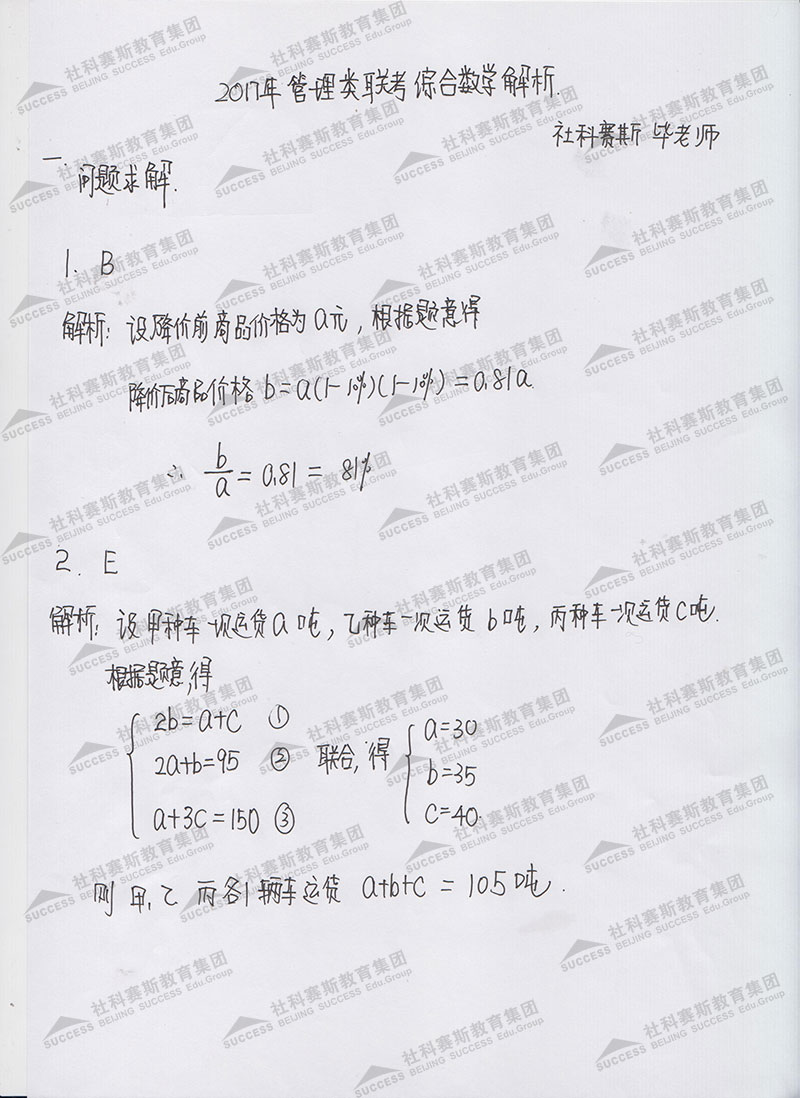 2017年管理类联考综合数学解析.
社科赛斯 毕老师
一.
问题求解.
1. B
解析: 设降价前商品价格为a元, 根据题意得
降价后商品价格 b=a(1-10%)(1-10%)=0.81a.
∴ b/a = 0.81 = 81%
2. E
解析: 设甲种车一次运货a吨, 乙种车一次运货 b吨, 丙种车一次运货c吨.
根据题意,得
2b=a+c ①
2a+b=95 ②
a+3c=150 ③
联合, 得
a=30
b=35
c=40.
则 甲, 乙 丙各1辆车运货 a+b+c = 105吨.
社科赛斯教育集团
SUCCESS BEIJING SUCCESS Edu.Group